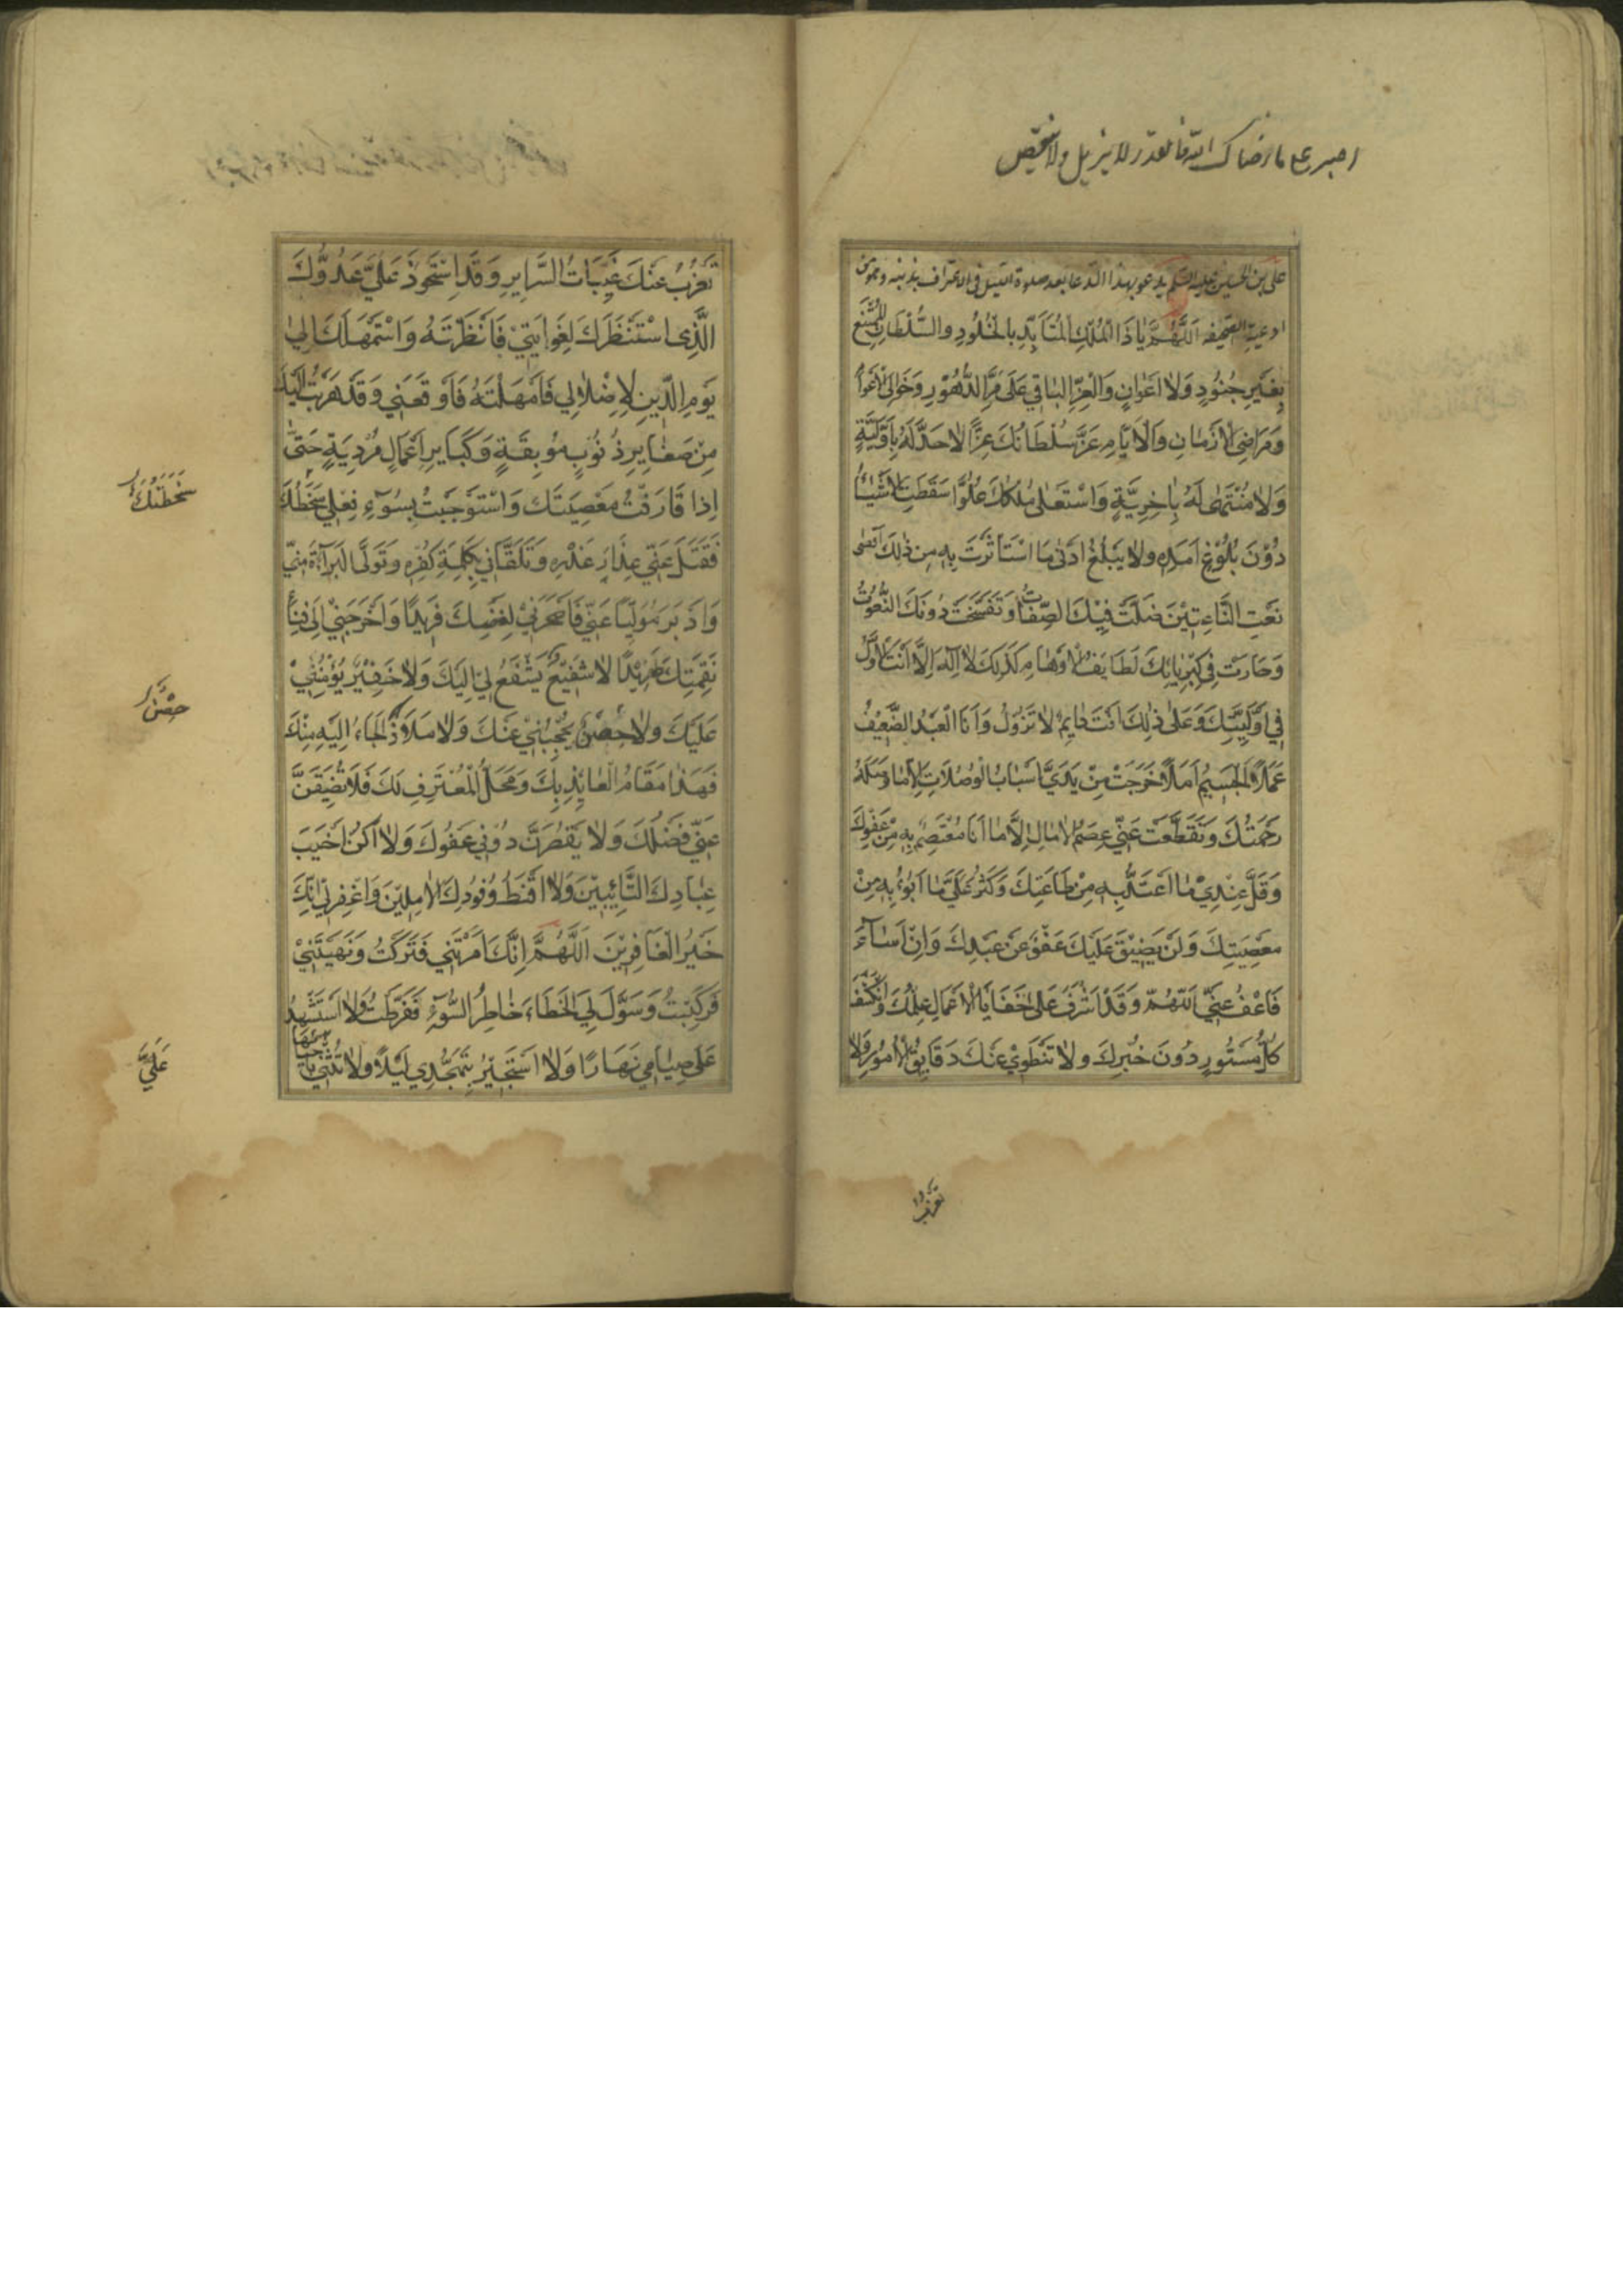 اصبر على ما رضاك الله فالمقدر لا يزيل ولا ينقص
علي بن الحسين عليه السلم يدعو بهذا الدعا بعد صلوة الليل في الاعتراف بذنبه وهو من
ادعية الصحيفه اَللّٰهُمَّ يَا ذَا الْمُلْكِ الْمُتَأَبِّدِ بِالْخُلُودِ وَالسُّلْطَانِ الْمُمْتَنِعِ
بِغَيْرِ جُنُودٍ وَلَا اَعْوَانٍ وَالْعِزِّ الْبَاقِي عَلَى مَرِّ الدُّهُوْرِ وَخَوَالِي الْاَعْوَامِ
وَمَرَاضِي الْاَزْمَانِ وَالْاَيَّامِ عَزَّ سُلْطَانُكَ عِزًّا لَا حَدَّ لَهُ بِاَوَّلِيَّةٍ
وَلَا مُنْتَهٰى لَهُ بِاٰخِرِيَّةٍ وَاسْتَعْلٰى مُلْكُكَ عُلُوًّا سَقَطَتِ الْاَشْيَاءُ
دُوْنَ بُلُوْغِ اَمَدِهِ وَلَا يَبْلُغُ اَدْنٰى مَا اسْتَأْثَرْتَ بِهِ مِنْ ذٰلِكَ اَقْصٰى
نَعْتِ النَّاعِتِيْنَ ضَلَّتْ فِيْكَ الصِّفَاتُ وَتَفَسَّخَتْ دُونَكَ النُّعُوتُ
وَحَارَتْ فِي كِبْرِيَائِكَ لَطَايِفُ الْاَوْهَامِ كَذٰلِكَ لَا اِلٰهَ اِلَّا اَنْتَ الْاَوَّلُ
فِي اَوَّلِيَّتِكَ وَعَلٰى ذٰلِكَ اَنْتَ دَايِمٌ لَا تَزُوْلُ وَاَنَا الْعَبْدُ الضَّعِيْفُ
عَمَلًا الْجَسِيْمُ اَمَلًا خَرَجَتْ مِنْ يَدَيَّ اَسْبَابُ الْوُصُلَاتِ اِلَّا مَا وَصَلَهُ
رَحْمَتُكَ وَتَقَطَّعَتْ عَنِّي عِصَمُ الْاٰمَالِ اِلَّا مَا اَنَا مُعْتَصِمٌ بِهِ مِنْ عَفْوِكَ
وَقَلَّ عِنْدِيْ مَا اَعْتَدُّ بِهِ مِنْ طَاعَتِكَ وَكَثُرَ عَلَيَّ مَا اَبُوْءُ بِهِ مِنْ
مَعْصِيَتِكَ وَلَنْ يَضِيْقَ عَلَيْكَ عَفْوٌ عَنْ عَبْدِكَ وَاِنْ اَسَاءَ
فَاعْفُ عَنِّيْ اَللّٰهُمَّ وَقَدْ اَشْرَفَ عَلٰى خَفَايَا الْاَعْمَالِ عِلْمُكَ وَانْكَشَفَ
كُلُّ مَسْتُورٍ دُونَ خُبْرِكَ وَلَا تَنْطَوِيْ عَنْكَ دَقَايِقُ الْاُمُوْرِ وَلَا
تَعْزُبُ
تَعْزُبُ عَنْكَ غَيِّبَاتُ السَّرَايِرِ وَقَدِ اسْتَحْوَذَ عَلَيَّ عَدُوُّكَ
الَّذِى اسْتَنْظَرَكَ لِغَوَايَتِيْ فَاَنْظَرْتَهُ وَاسْتَمْهَلَكَ اِلٰى
يَوْمِ الدِّينِ لِاِضْلَالِي فَاَمْهَلْتَهُ فَاَوْقَعَنِي وَقَدْ هَرَبْتُ اِلَيْكَ
مِنْ صَغَايِرِ ذُنُوْبٍ مُوْبِقَةٍ وَكَبَايِرِ اَعْمَالٍ مُرْدِيَةٍ حَتّٰى
اِذَا قَارَفْتُ مَعْصِيَتَكَ وَاسْتَوْجَبْتُ بِسُوْءِ فِعْلِي سَخَطَكَ
سَخْطَتَكَ
فَفَتَلَ عَنِّي عِذَارَ غَدْرِهِ وَتَلَقَّانِي بِكَلِمَةِ كُفْرِهِ وَتَوَلَّى الْبَرَآءَةَ مِنِّي
وَاَدْبَرَ مُوَلِّيًا عَنِّي فَاَصْحَرَنِيْ لِغَضَبِكَ فَرِيْدًا وَاَخْرَجَنِيْ اِلٰى فِنَاءِ
نَقِمَتِكَ طَرِيْدًا لَا شَفِيْعٌ يَشْفَعُ لِي اِلَيْكَ وَلَا خَفِيْرٌ يُؤْمِنُنِيْ
عَلَيْكَ وَلَا حِصْنٌ يَحْجُبُنِيْ عَنْكَ وَلَا مَلَاذٌ اَلْجَاءُ اِلَيْهِ مِنْكَ
حِصْنٌ
فَهٰذَا مَقَامُ الْعَايِذِ بِكَ وَمَحَلُّ الْمُعْتَرِفِ لَكَ فَلَا تُضَيِّقَنَّ
عَنِّي فَضْلَكَ وَلَا يَقْصُرَنَّ دُوْنِي عَفْوُكَ وَلَا اَكُنْ اَخْيَبَ
عِبَادِكَ التَّائِبِيْنَ وَلَا اَقْنَطَ وُفُودِكَ الْاٰمِلِيْنَ وَاغْفِرْلِيْ اِنَّكَ
خَيْرُ الْغَافِرِيْنَ اَللّٰهُمَّ اِنَّكَ اَمَرْتَنِي فَتَرَكْتُ وَنَهَيْتَنِيْ
فَرَكِبْتُ وَسَوَّلَ لِيَ الْخَطَاءَ خَاطِرُ السُّوْءِ فَفَرَّطْتُ وَلَا اَسْتَشْهِدُ
عَلٰى صِيَامِي نَهَارًا وَلَا اَسْتَجِيْرُ بِتَهَجُّدِي لَيْلًا وَلَا تُثْنِي بِاِحْيَائِهَا
عَلَيَّ